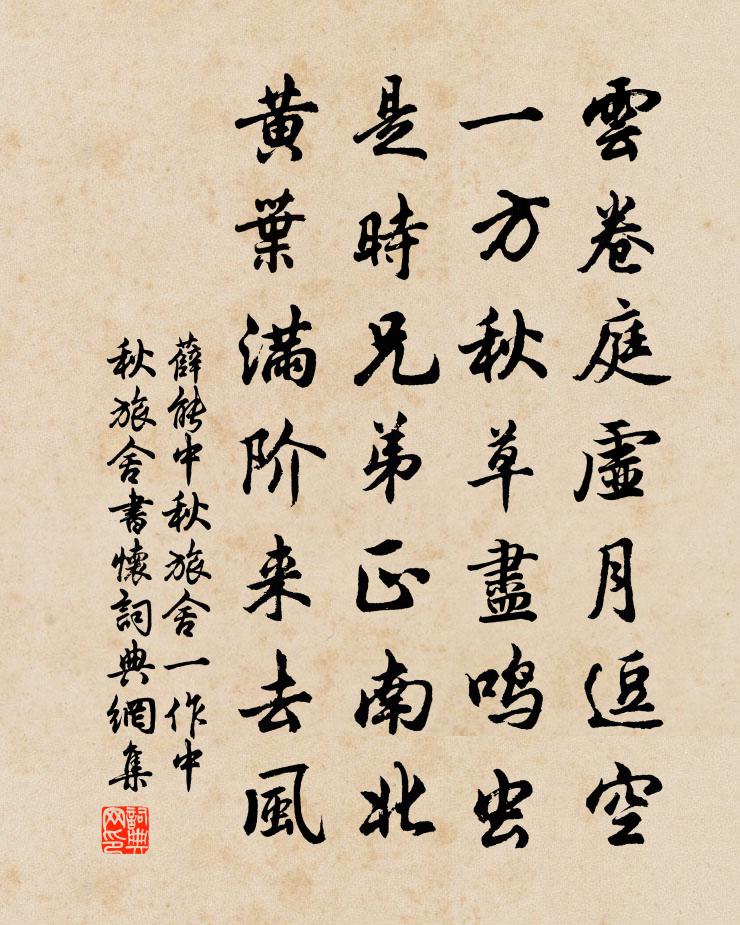 雲卷庭虛月逗空
一方秋草盡鸣虫
是時兄弟正南北
黃葉滿阶来去風
薛能中秋旅舍一作中
秋旅舍書懷詞典網集
詞典网印